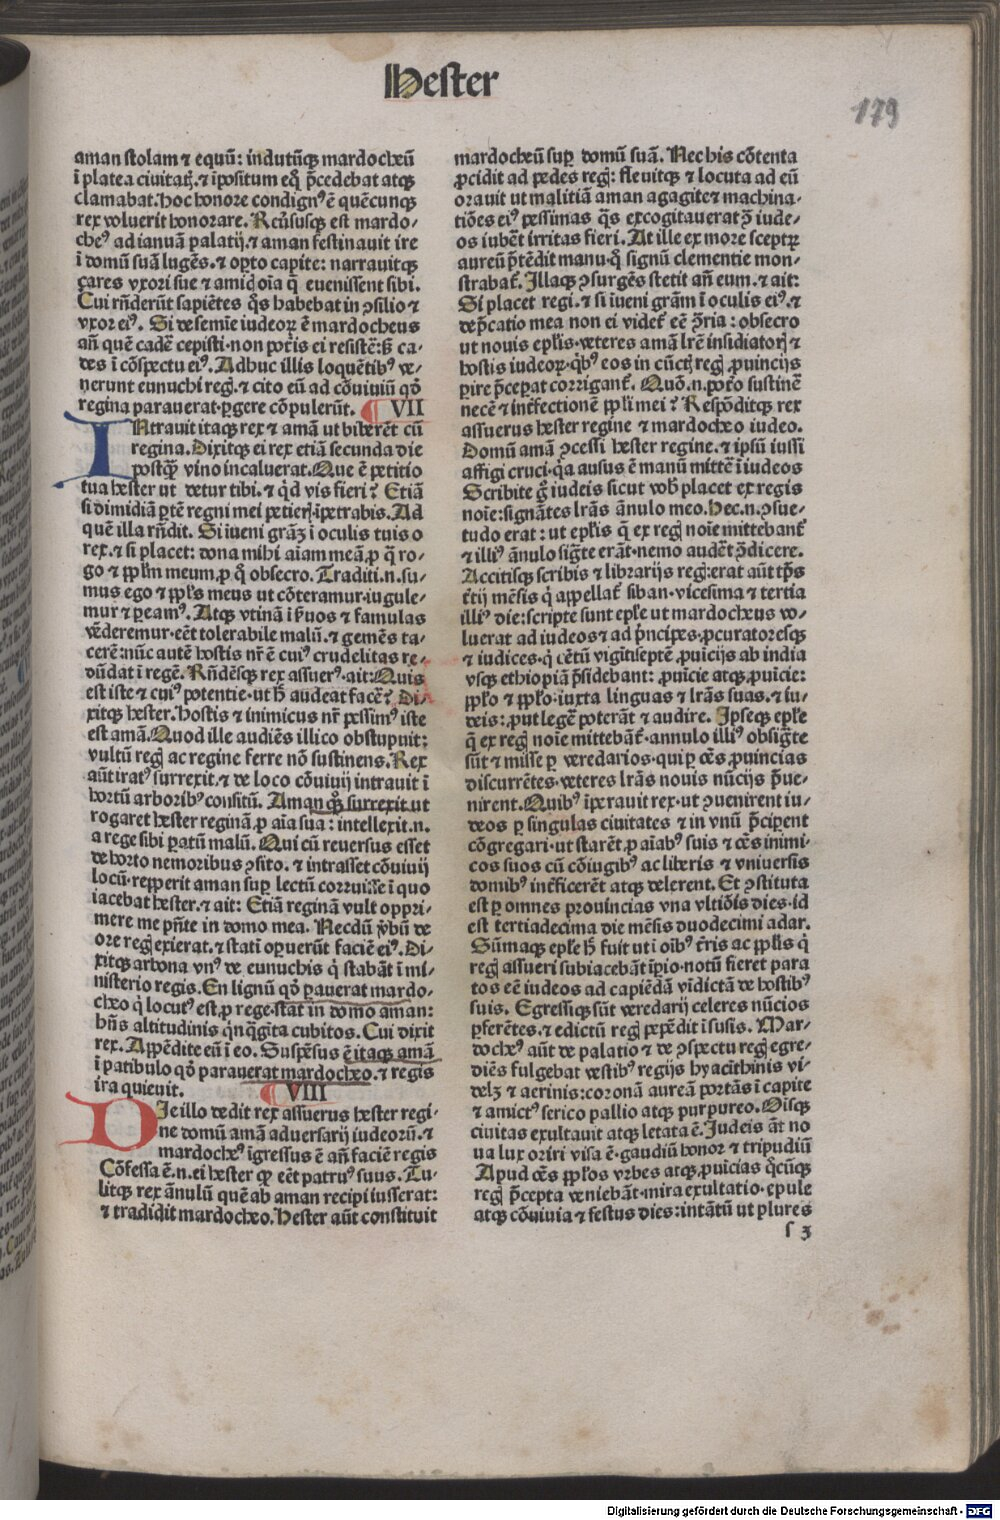 Hester
179
aman stolam ⁊ equū: indutūq; mardocheū
ī platea ciuitatꝭ.⁊ īpositum eqͦ p̄cedebat atq;
clamabat.hoc honore condignꝰ ē quēcunq;
rex voluerit honorare. Reūsusq; est mardo-
cheꝰ ad ianuā palatij.⁊ aman festinauit ire
ī domū suā lugēs.⁊ oꝑto capite: narrauitq;
çares vxori sue ⁊ amicꝭ oīa q̄ euenissent sibi.
Cui rn̄derūt sapiētes qͦs habebat in ↄsilio ⁊
vxor eiꝰ. Si de semīe iudeoꝝ ē mardocheus
an̄ quē cadē cepisti·non poťis ei resistē:ß ca-
des ī cōspectu eiꝰ. Adhuc illis loquētibꝰ ve-
nerunt eunuchi regꝭ.⁊ cito eū ad cōuiuiū qd̄
regina parauerat·ꝑgere cōpulerūt. ¶ VII
INtrauit itaq; rex ⁊ amā ut biberēt cū
regina.Dixitq; ei rex etiā secunda die
postqꝫ vino incaluerat.Que ē petitio
tua hester ut detur tibi.⁊ qͥd vis fieri? Etiā
si dimidiā ꝑtē regni mei petierꝭ·īpetrabis. Ad
quē illa rn̄dit. Si īueni grāꝫ ī oculis tuis o
rex.⁊ si placet: dona mihi aīam meā·ꝓ q̄ ro-
go ⁊ pplm̄ meum·ꝓ qͦ obsecro. Traditi.n.su-
mus ego ⁊ ppls̄ meus ut cōteramur·iugule-
mur ⁊ ꝑeamꝰ. Atq; vtinā ī ẜuos ⁊ famulas
vēderemur·eēt tolerabile malū.⁊ gemēs ta-
cerē:nūc autē hostis nr̄ ē cuiꝰ crudelitas re-
dūdat ī regē. Rn̄dēsq; rex assuerꝰ·ait:Quis
est iste ⁊ cuiꝰ potentie·ut h̄ audeat facē? Di-
xitq; hester. Hostis ⁊ inimicus nr̄ pessimꝰ iste
est amā.Quod ille audiēs illico obstupuit:
vultū regꝭ ac regine ferre nō sustinens. Rex
aūt iratꝰ surrexit.⁊ de loco cōuiuij intrauit ī
hortū arboribꝰ consitū. Aman qͦꝫ surrexit ut
rogaret hester reginā·ꝓ aīa sua: intellexit.n.
a rege sibi ꝑatū malū. Qui cū reuersus esset
de horto nemoribus ↄsito.⁊ intrasset cōuiuij
locū·repperit aman suꝑ lectū corruisse ī quo
iacebat hester.⁊ ait: Etiā reginā vult oppri-
mere me pn̄te in domo mea. Necdū v̄bū de
ore regꝭ exierat.⁊ statī oꝑuerūt faciē eiꝰ. Di-
xitq; arbona vnꝰ de eunuchis qͥ stabāt ī mi-
nisterio regis. En lignū qd̄ ꝑauerat mardo-
cheo qͥ locutꝰ est·ꝓ rege·stat in domo aman:
hn̄s altitudinis qͥnqͣgīta cubitos. Cui dixit
rex. Appēdite eū ī eo. Suspēsus ē itaq; amā
ī patibulo qd̄ parauerat mardocheo.⁊ regis
ira quieuit. ¶ VIII
DIe illo dedit rex assuerus hester regi-
ne domū amā aduersarij iudeorū.⁊
mardocheꝰ īgressus ē an̄ faciē regis
Cōfessa ē.n.ei hester qꝙ eēt patruꝰ suus. Tu-
litq; rex ānulū quē ab aman recipi iusserat:
⁊ tradidit mardocheo. Hester aūt constituit
mardocheū suꝑ domū suā. Nec his cōtenta
ꝓcidit ad pedes regꝭ: fleuitq; ⁊ locuta ad eū
orauit ut malitiā aman agagite⁊ machina-
tiōes eiꝰ pessimas qͣs excogitauerat ↄ̄ iude-
os iubēt irritas fieri. At ille ex more sceptꝝ
aureū ꝓtēdit manu·qͦ signū clementie mon-
strabať. Illaq; ↄsurgēs stetit an̄ eum.⁊ ait:
Si placet regi.⁊ si īueni grām ī oculis eiꝰ.⁊
dep̄catio mea non ei videť eē ↄ̄ria: obsecro
ut nouis epl̄is·veteres amā lrē insidiatorꝭ ⁊
hostis iudeoꝝ·qͥbꝰ eos in cūctꝭ regꝭ ꝓuincijs
ꝑire p̄ceꝑat corriganť. Quō.n.poťo sustinē
necē ⁊ inťfectionē ppl̄i mei? Respōditq; rex
assuerus hester regine ⁊ mardocheo iudeo.
Domū amā ↄcessi hester regine.⁊ ipsū iussi
affigi cruci·qͣ ausus ē manū mittē ī iudeos
Scribite gͦ iudeis sicut vob̄ placet ex regis
noīe:signātes lrās ānulo meo.Hec.n.ↄsue-
tudo erat: ut epl̄is q̄ ex regꝭ noīe mittebanť
⁊ illiꝰ ānulo sig̅te erāt·nemo audēt ↄ̄dicere.
Accitisq; scribis ⁊ librarijs regꝭ:erat aūt tp̄s
ťtij mēsis qͥ appellať siban·vicesima ⁊ tertia
illiꝰ die:scripte sunt epl̄e ut mardocheus vo-
luerat ad iudeos⁊ ad pͥncipes·ꝓcuratoresq;
⁊ iudices·qͥ cētū vigītiseptē ꝓuīcijs ab india
vsq; ethiopiā p̄sidebant: ꝓuīcie atq; ꝓuīcie:
pplo ⁊ pplo·iuxta linguas ⁊ lrās suas.⁊ iu-
deis:ꝓut legē poterāt ⁊ audire. Ipseq; epl̄e
q̄ ex regꝭ noīe mittebanť·annulo illiꝰ obsig̅te
sūt ⁊ misse ꝑ veredarios·qui ꝑ oēs ꝓuincias
discurrētes·veteres lrās nouis nūcijs p̄ue-
nirent.Quibꝰ īperauit rex·ut ↄuenirent iu-
deos ꝑ singulas ciuitates ⁊ in vnū p̄ciꝑent
cōgregari·ut starēt ꝓ aīabꝰ suis ⁊ oēs inimi-
cos suos cū cōiugibꝰ ac liberis ⁊ vniuersis
domibꝰ inťficerēt atq; delerent. Et ↄstituta
est ꝑ omnes prouincias vna vltiōis dies·id
est tertiadecima die mēsis duodecimi adar.
Sūmaq; epl̄e h̄ fuit uti oībꝰ tr̄ris ac ppl̄is qͥ
regꝭ assueri subiacebāt īꝑio·notū fieret para
tos eē iudeos ad capiēdā vīdictā de hostibꝰ
suis. Egressiq; sūt veredarij celeres nūcios
ꝑferētes.⁊ edictū regꝭ peꝑēdit ī susis. Mar-
docheꝰ aūt de palatio ⁊ de ↄspectu regꝭ egre-
diēs fulgebat vestibꝰ regijs hyacīthinis vi-
delꝫ ⁊ aerinis:coronā aureā portās ī capite
⁊ amictꝰ serico pallio atq; purpureo. Oīsq;
ciuitas exultauit atq; letata ē. Iudeis āt no
ua lux oriri visa ē·gaudiū honor ⁊ tripudiū
Apud oēs pplos vrbes atq; ꝓuīcias qͦcūq;
regꝭ p̄cepta veniebāt·mira exultatio·epule
atq; cōuiuia ⁊ festus dies:intātū ut plures
s 3
Digitalisierung gefördert durch die Deutsche Forschungsgemeinschaft - DFG